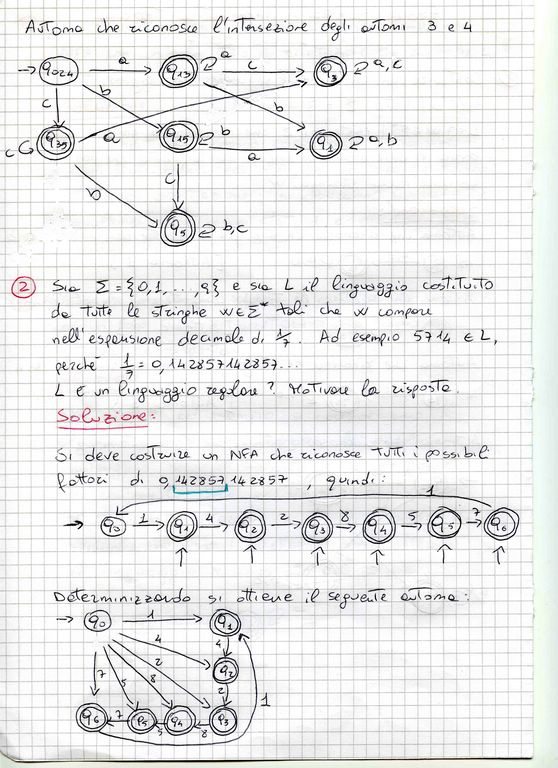 Automa che riconosce l'intersezione degli automi 3 e 4
q024 a q13 a c q3 a,c
c b b
c q35 a q15 b a q1 a,b
b c
q5 b,c
2 Sia Σ = {0,1,..,9} e sia L il linguaggio costituito
da tutte le stringhe w∈Σ* tali che w compare
nell'espansione decimale di 1/7. Ad esempio 5714 ∈ L,
perché 1/7 = 0,142857142857...
L è un linguaggio regolare? Motivare la risposta.
Soluzione:
Si deve costruire un NFA che riconosce tutti i possibili
fattori di 0,142857142857, quindi:
1
q0 1 q1 4 q2 2 q3 8 q4 5 q5 7 q6
Determinizzando si ottiene il seguente automa:
q0 1 q1
4 4
2 q2
7 5 8 2 1
q6 7 q5 5 q4 8 q3